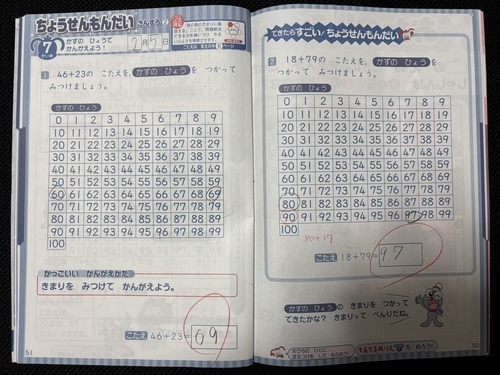 ちょうせんもんだい さんすう 2
7
かずの ひょうで
かんがえよう!
7月7日
1 46+23の こたえを、かずの ひょう を つかって
みつけましょう。
かずの ひょう
0 1 2 3 4 5 6 7 8 9
10 11 12 13 14 15 16 17 18 19
20 21 22 23 24 25 26 27 28 29
30 31 32 33 34 35 36 37 38 39
40 41 42 43 44 45 46 47 48 49
50 51 52 53 54 55 56 57 58 59
60 61 62 63 64 65 66 67 68 69
70 71 72 73 74 75 76 77 78 79
80 81 82 83 84 85 86 87 88 89
90 91 92 93 94 95 96 97 98 99
100
かっこいい かんがえかた
きまりを みつけて かんがえよう。
こたえ 46+23= 69
51
できたら すごい! ちょうせんもんだい
2 18+79の こたえを、かずの ひょう を
つかって みつけましょう。
かずの ひょう
0 1 2 3 4 5 6 7 8 9
10 11 12 13 14 15 16 17 18 19
20 21 22 23 24 25 26 27 28 29
30 31 32 33 34 35 36 37 38 39
40 41 42 43 44 45 46 47 48 49
50 51 52 53 54 55 56 57 58 59
60 61 62 63 64 65 66 67 68 69
70 71 72 73 74 75 76 77 78 79
80 81 82 83 84 85 86 87 88 89
90 91 92 93 94 95 96 97 98 99
100
80+17
こたえ 18+79= 97
かずの ひょう の きまりを つかって
できたかな? きまりって べんりだね。
おうちの ひとに
まるつけを して もらおう!
を ぬろう!
50